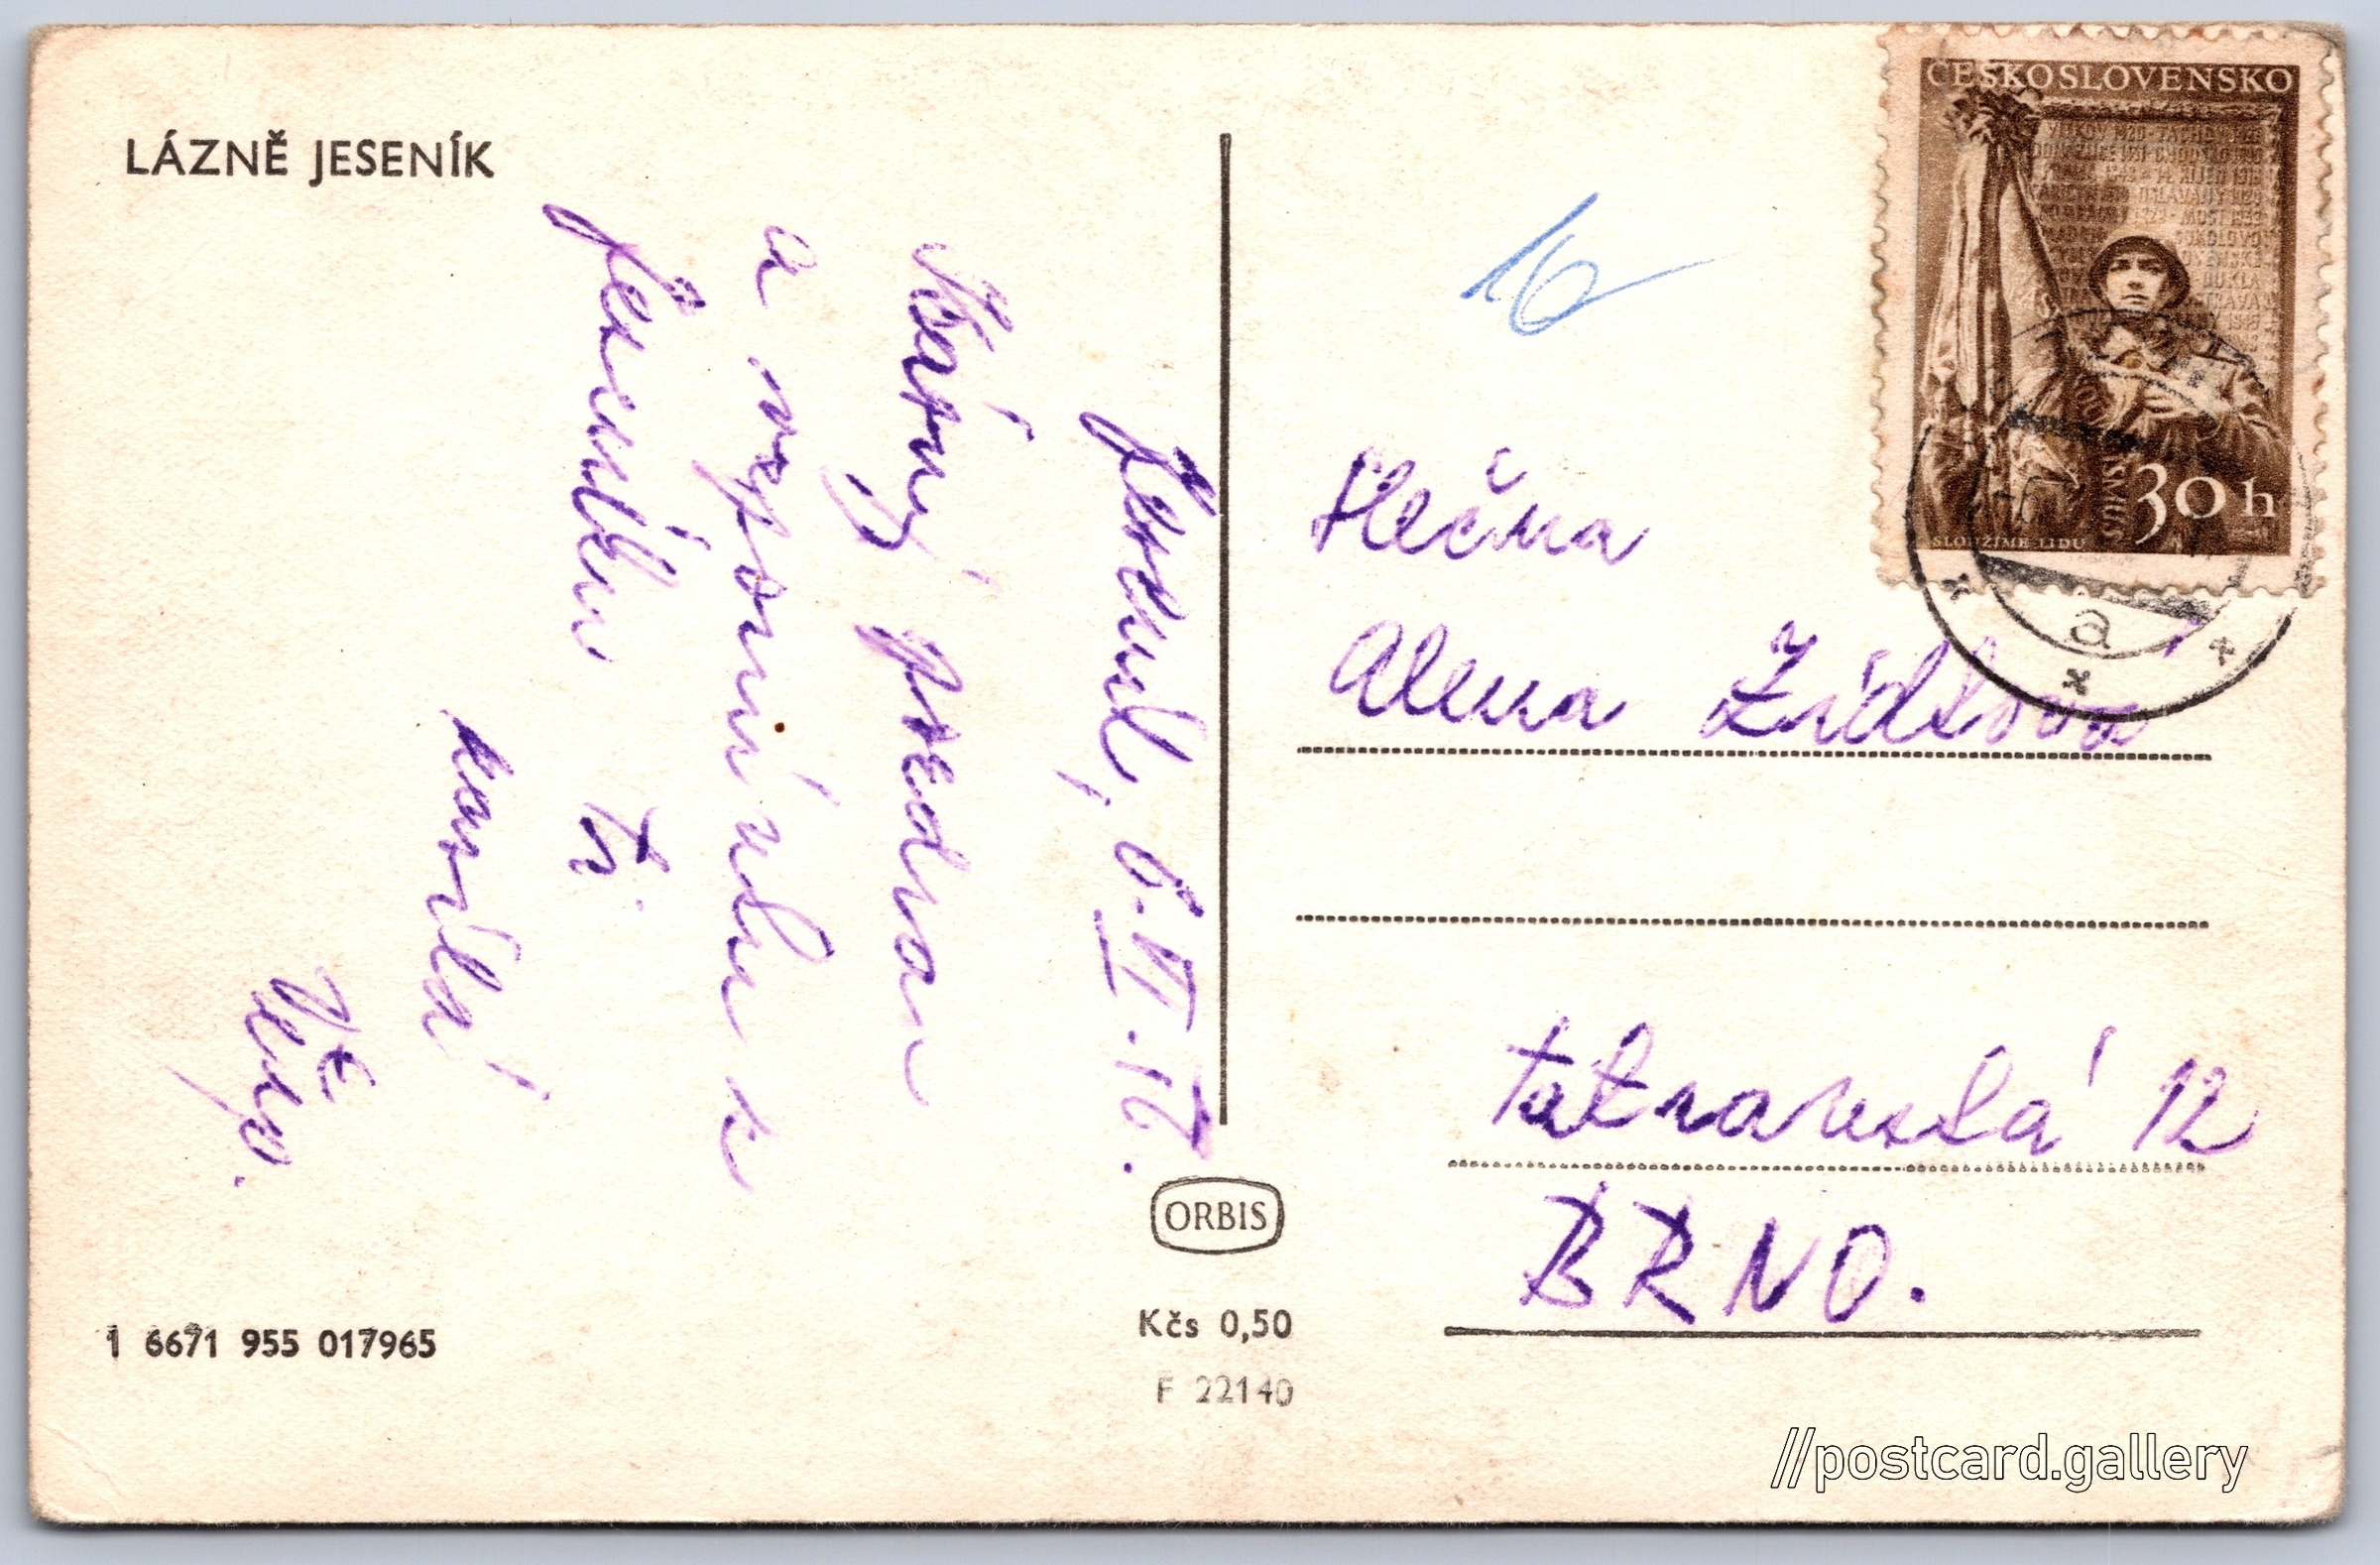 LÁZNĚ JESENÍK
Jeseník, 6. VI.
Krásný pozdrav
a vzpomínku z
Jeseníku Ti
posílá
Věra.
1 6671 955 017965
ORBIS
Kčs 0,50
F 22140
16
ČESKOSLOVENSKO
30 h
SLOUŽÍME LIDU
a
Slečna
Alena Žídková
Tatranská 12
BRNO.
//postcard.gallery